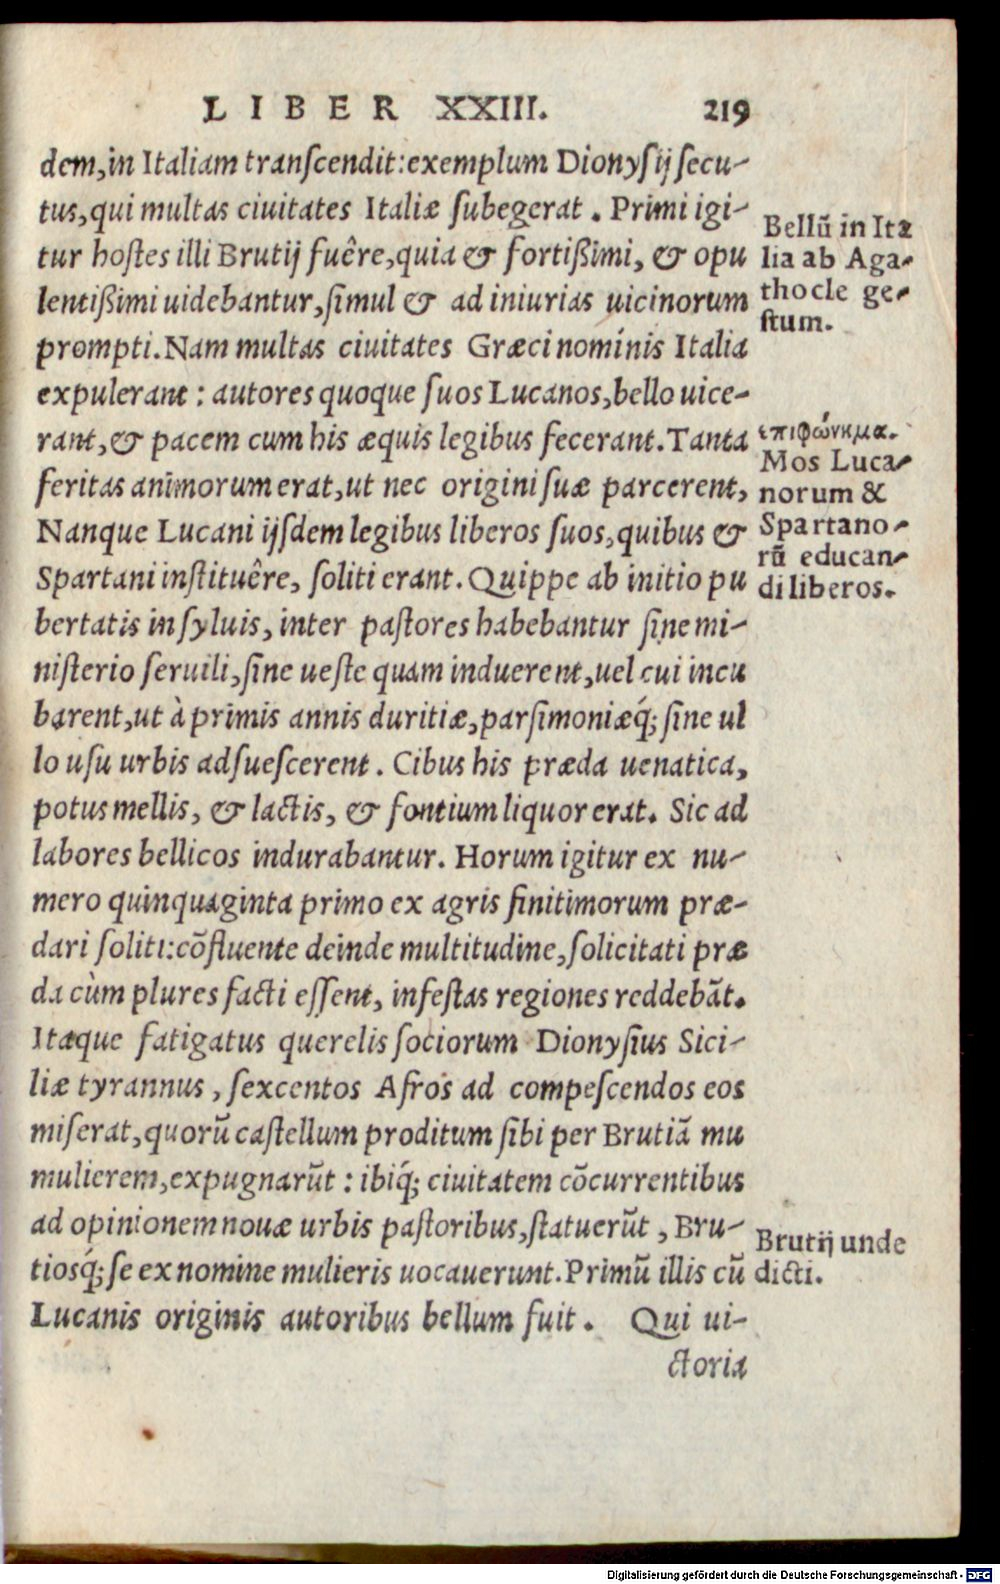 LIBER XXIII. 219
dem,in Italiam tranſcendit:exemplum Dionyſij ſecu-
tus,qui multas ciuitates Italiæ ſubegerat. Primi igi-
tur hoſtes illi Brutij fuêre,quia & fortißimi, & opu
lentißimi uidebantur,ſimul & ad iniurias uicinorum
prompti.Nam multas ciuitates Græci nominis Italia
expulerant: autores quoque ſuos Lucanos,bello uice-
rant,& pacem cum his æquis legibus fecerant.Tanta
feritas animorum erat,ut nec origini ſuæ parcerent,
Nanque Lucani ijſdem legibus liberos ſuos,quibus &
Spartani inſtituêre, ſoliti erant. Quippe ab initio pu
bertatis in ſyluis, inter paſtores habebantur ſine mi-
niſterio ſeruili,ſine ueſte quam induerent,uel cui incu
barent,ut à primis annis duritiæ,parſimoniæq́; ſine ul
lo uſu urbis adſueſcerent. Cibus his præda uenatica,
potus mellis, & lactis, & fontium liquor erat. Sic ad
labores bellicos indurabantur. Horum igitur ex nu-
mero quinquaginta primo ex agris finitimorum præ-
dari ſoliti:cõfluente deinde multitudine,ſolicitati præ
da cùm plures facti eſſent, infeſtas regiones reddebãt.
Itaque fatigatus querelis ſociorum Dionyſius Sici-
liæ tyrannus, ſexcentos Afros ad compeſcendos eos
miſerat,quorũ caſtellum proditum ſibi per Brutiã mu
mulierem,expugnarũt: ibiq́; ciuitatem cõcurrentibus
ad opinionem nouæ urbis paſtoribus,ſtatuerũt, Bru-
tiosq́; ſe ex nomine mulieris uocauerunt.Primũ illis cũ
Lucanis originis autoribus bellum fuit. Qui ui-
ctoria
Bellũ in Ita
lia ab Aga-
thocle ge-
ſtum.
ἐπιφώνημα.
Mos Luca-
norum &
Spartano-
rũ educan-
di liberos.
Brutij unde
dicti.
Digitalisierung gefördert durch die Deutsche Forschungsgemeinschaft - DFG